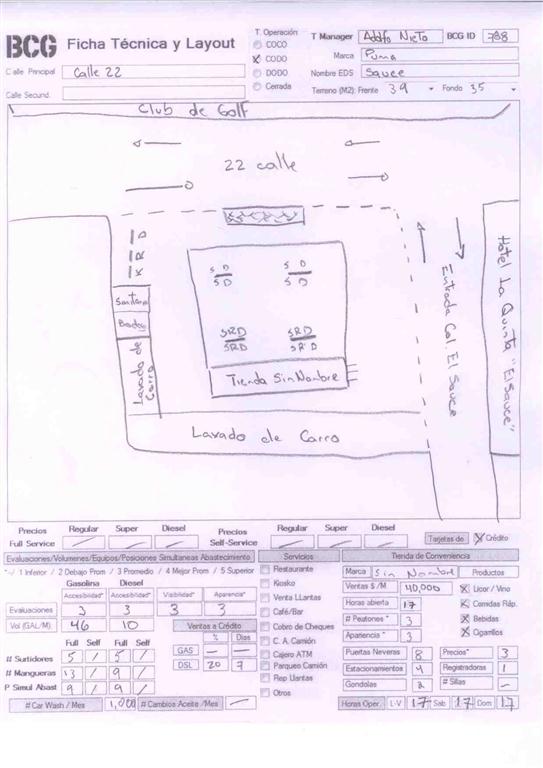 BCG Ficha Técnica y Layout
T. Operación
COCO
CODO
DODO
Cerrada
T Manager Adolfo Nieto BCG ID 788
Marca Puma
Nombre EDS Sauce
Terreno (M2): Frente 39 Fondo 35
Calle Principal Calle 22
Calle Secund.
Club de Golf
22 calle
K R D
S D
S D
S D
S D
SRD
SRD
SRD
SRD
Tienda Sin Nombre
Lavado de Carro
Lavado de Carro
Entrada Col. El Sauce
Hotel La Quinta "El Sauce"
Precios Regular Super Diesel Precios Regular Super Diesel
Full Service Self-Service Tarjetas de X Crédito
Evaluaciones/Volumenes/Equipos/Posiciones Simultaneas Abastecimiento
*-/ 1 Inferior / 2 Debajo Prom / 3 Promedio / 4 Mejor Prom / 5 Superior
Gasolina Diesel
Accesibilidad* Accesibilidad* Visiblidad* Aparencia*
Evaluaciones 3 3 3 3
Vol (GAL/M) 46 10
Ventas a Crédito
% Dias
GAS — —
DSL 20 7
Full Self Full Self
# Surtidores 5 / 5 /
# Mangueras 13 / 9 /
P Simul Abast 9 / 9 /
# Car Wash / Mes 1,000 # Cambios Aceite /Mes —
Servicios
Restaurante
Kiosko
Venta LLantas
Café/Bar
Cobro de Cheques
C. A. Camión
Cajero ATM
Parqueo Camión
Rep Llantas
Otros
Tienda de Conveniencia
Marca Sin Nombre Productos
Ventas $ /M 40,000
Horas abierta 17
# Peutones * 3
Apariencia * 3
X Licor / Vino
X Comidas Ráp.
X Bebidas
X Cigarrillos
Puertas Neveras 8 Precios* 3
Estacionamientos 4 Registradoras 1
Gondolas 2 # Sillas —
Horas Oper. L-V 17 Sab 17 Dom 17